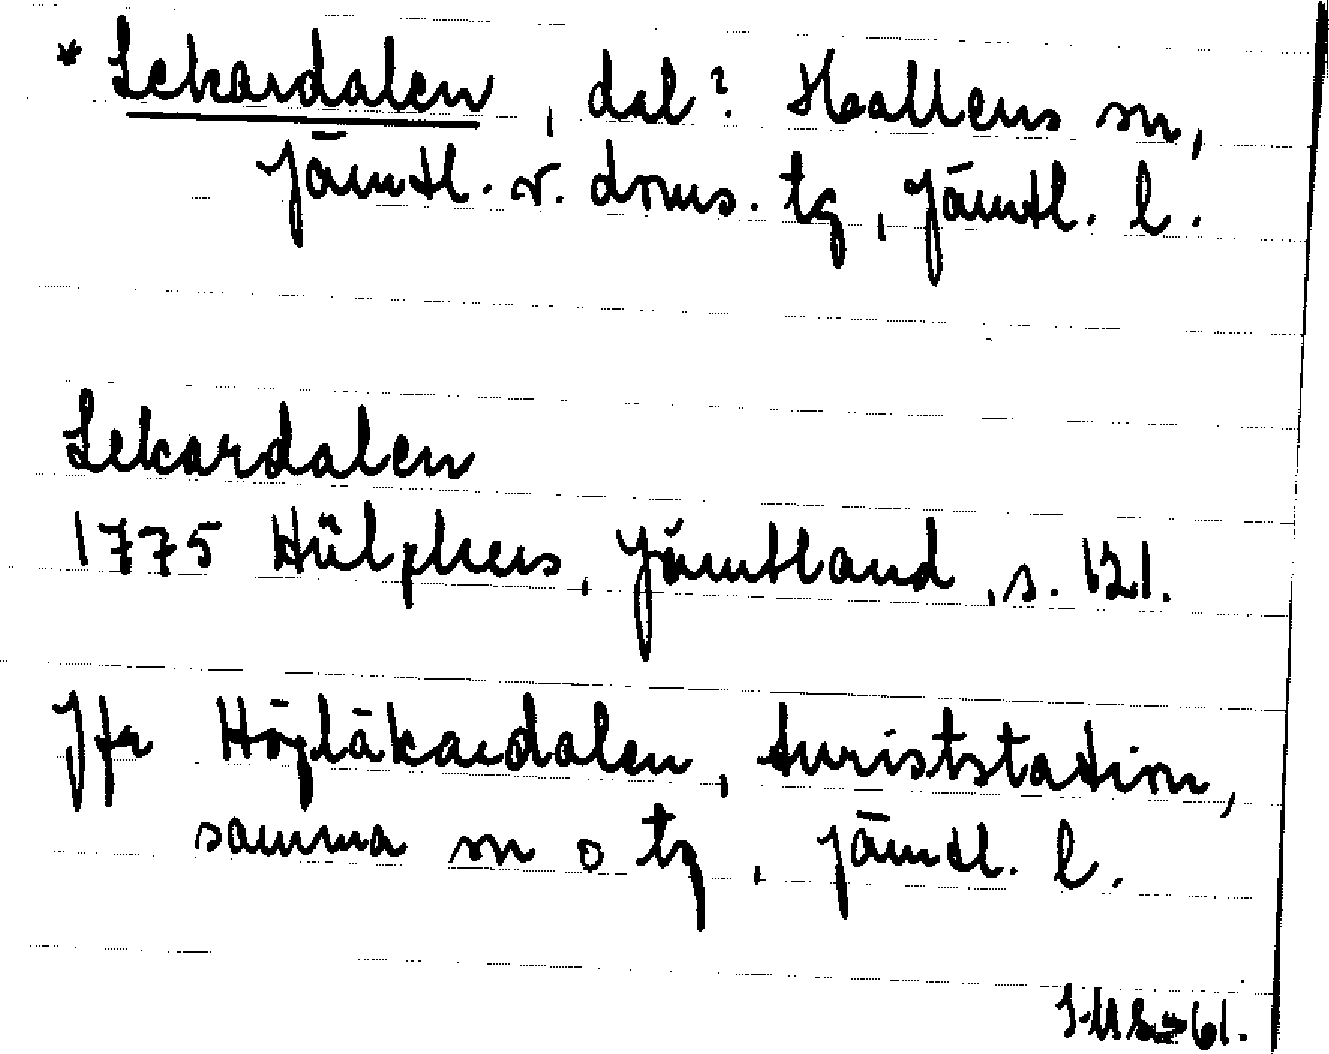 * Lekardalen, dal? Hallens sn,
Jämtl. v. doms. tg, Jämtl. l.
Lekardalen
1775 Hülphers, Jämtland, s. 121.
Jfr Högläkardalen, turiststation,
samma sn o tg, Jämtl. l.